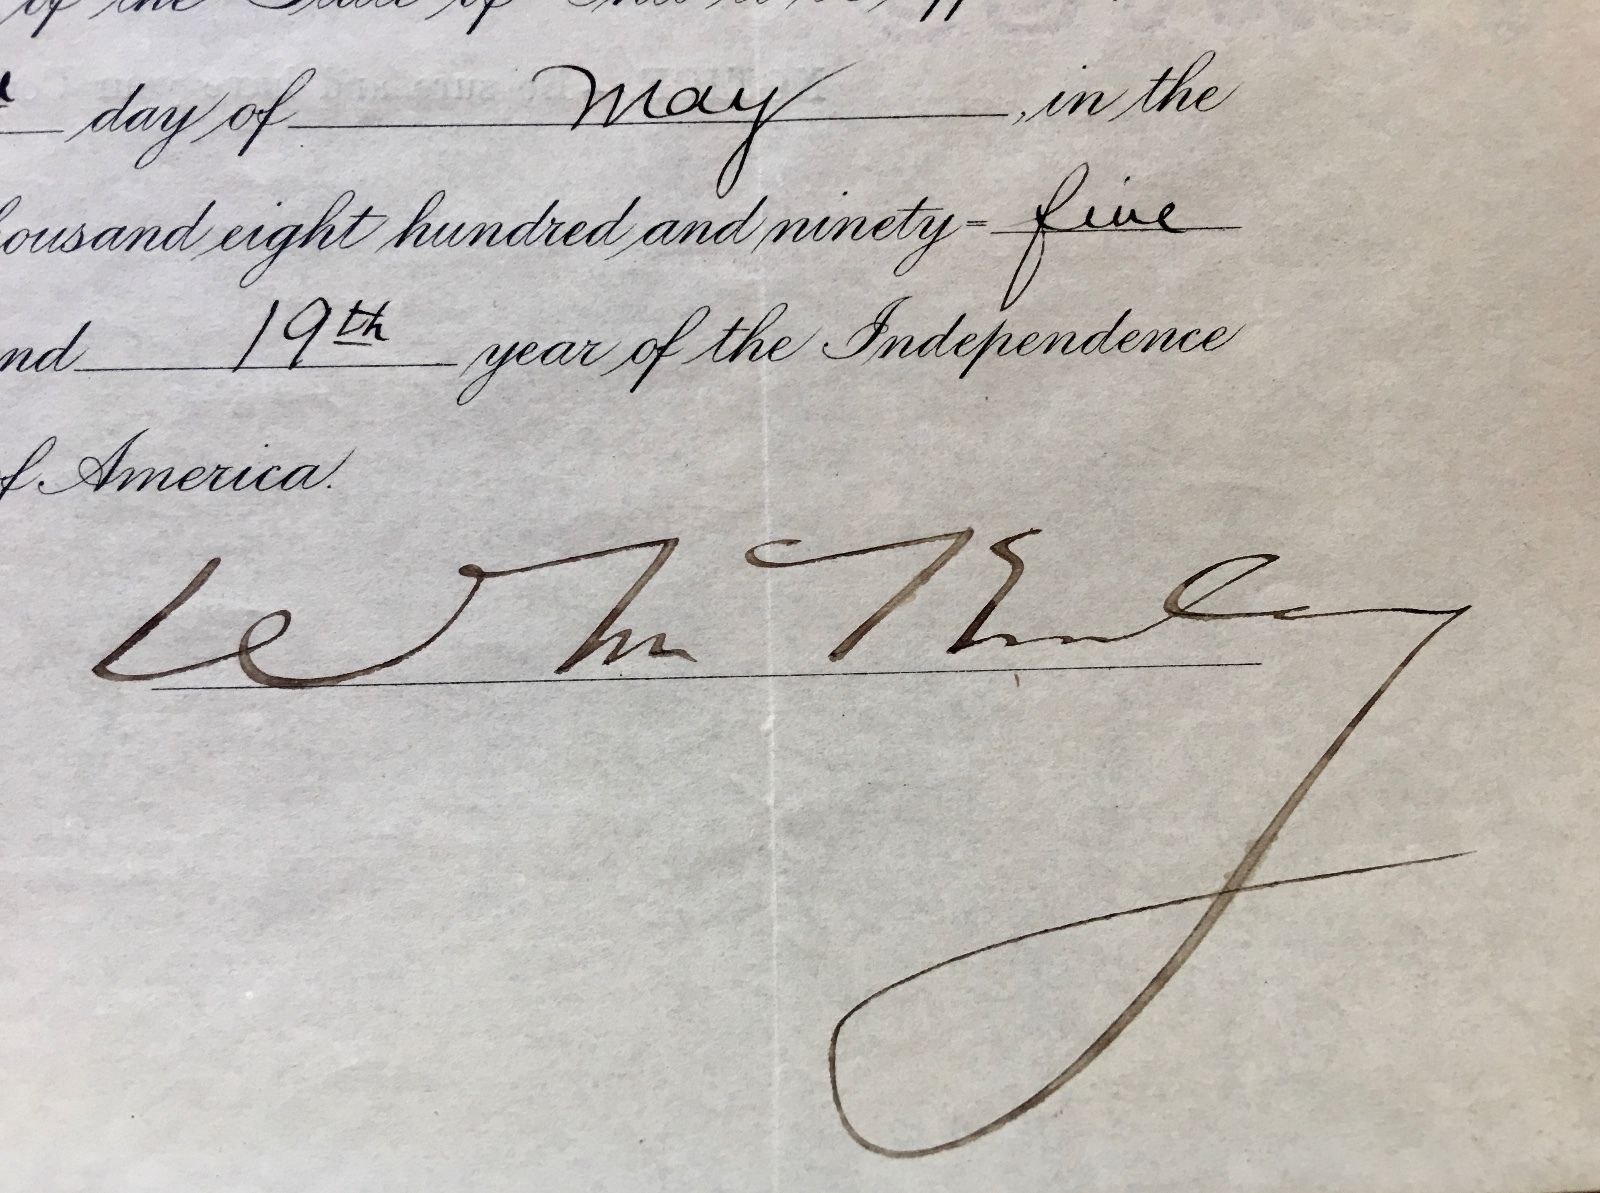 of the State of
day of May, in the
thousand eight hundred and ninety=five
nd 19th year of the Independence
of America.
Wm McKinley